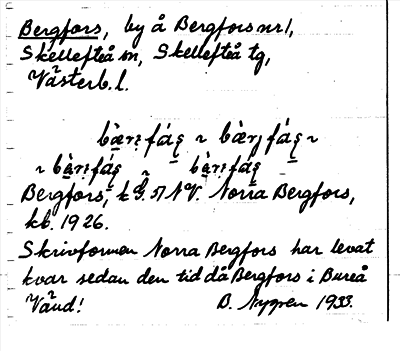 Bergfors, by å Bergfors nr 1,
Skellefteå sn, Skellefteå tg,
Västerb. l.
bæ̀rʒfás̨ ~ bæ̀rjfás̨ ~
~ bæ̀rʒfás̨ bæ̀rʒfás̨
Bergfors, NV. Norra Bergfors,
kb. 1926.
Skrivformen Norra Bergfors har levat
kvar sedan den tid då Bergfors i Bureå
Vänd! B. Nygren 1933.